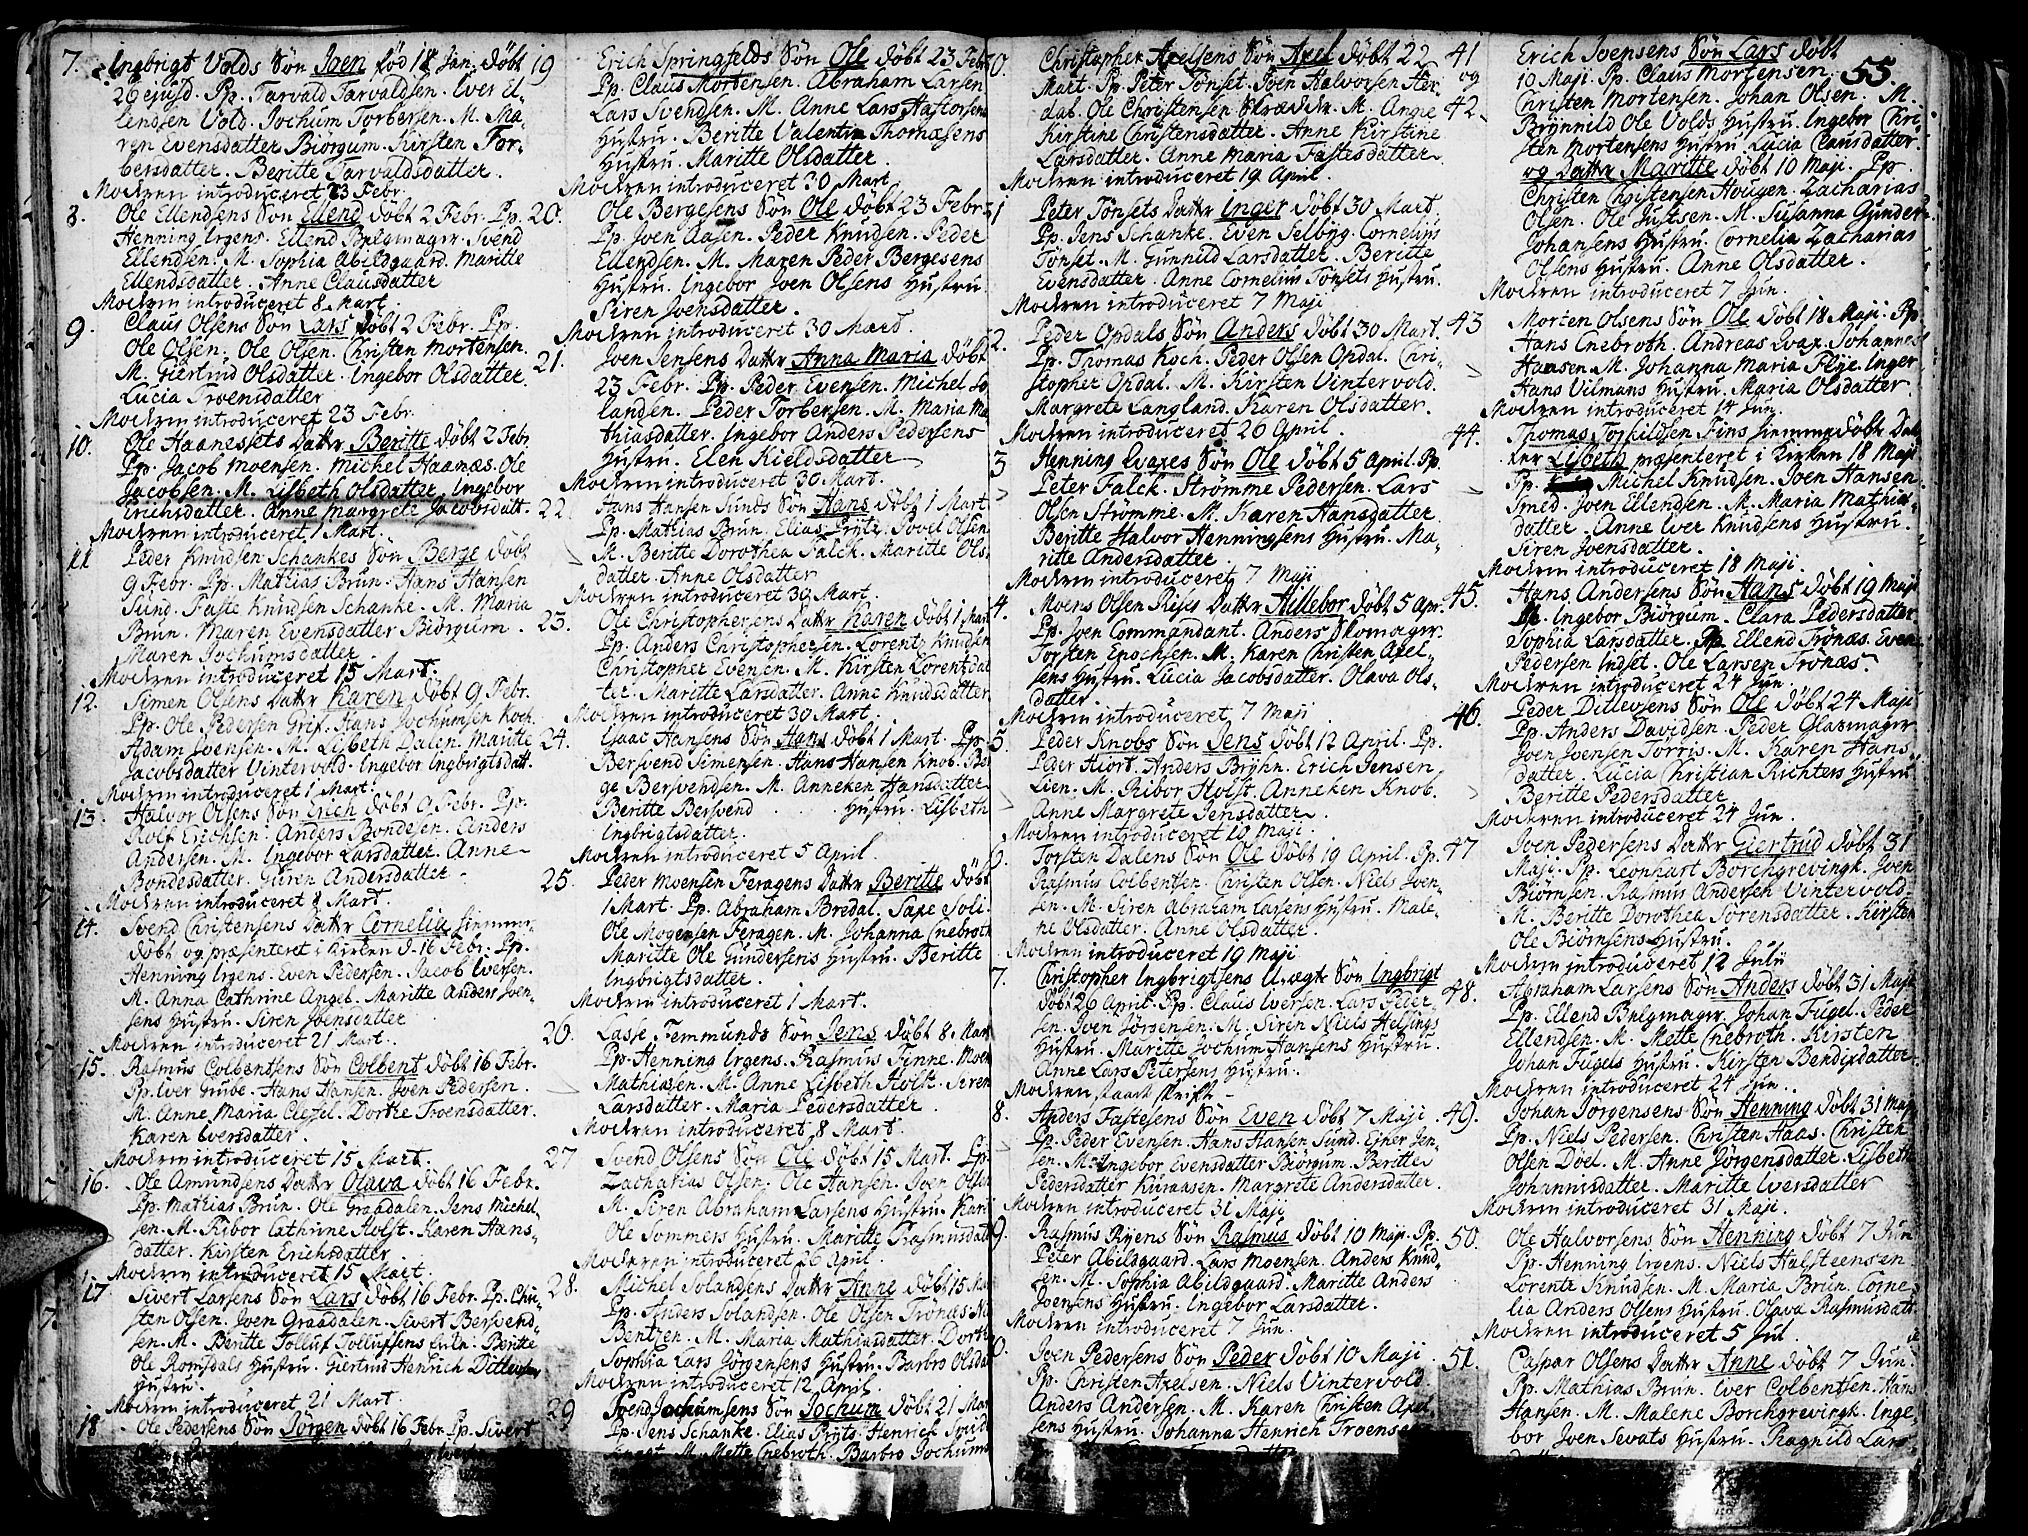 7. Ingbrigt Volds Søn Joen fød 18 Jan. døbt
26 ejusd. Pp. Tarvald Tarvaldsen. Iver El-
lendsen Vold. Jochum Torbersen. M. Ma-
ren Evensdatter Biörgum. Kirsten Tor-
bersdatter. Beritte Tarvaldsdatter.
Modren introduceret 23 Febr.
8. Ole Ellendsens Søn Ellend døbt 2 Febr. Pp.
Henning Irgens. Ellend Bælgmager. Svend
Ellendsen. M. Sophia Abildgaard. Maritte
Ellendsdatter. Anne Clausdatter
Modren introduceret 8 Mart.
9. Claus Olsens Søn Lars døbt 2 Febr. Pp.
Ole Olsen. Ole Olsen. Christen Mortensen.
M. Giertrud Olsdatter. Ingebor Olsdatter.
Lucia Troensdatter
Modren introduceret 23 Febr.
10. Ole Haanesets Dattr Beritte døbt 2 Febr.
Pp. Jacob Moensen. Michel Haanæs. Ole
Jacobsen. M. Lisbeth Olsdatter. Ingebor
Erichsdatter. Anne Margrete Jacobsdatt.
Modren introduceret 1 Mart.
11 Peder Knudsen Schankes Søn Berge døbt
9 Febr. Pp. Mathias Brun. Hans Hansen
Sund. Faste Knudsen Schanke. M. Maria
Brun. Maren Evensdatter Biörgum.
Maren Jochumsdatter
Modren introduceret 15 Mart.
12. Simen Olsens Dattr Karen døbt 9 Febr.
Pp. Ole Pedersen Grif. Hans Jochumsen Koch.
Adam Joensen. M. Lisbeth Dalen. Maritte
Jacobsdatter Vintervold. Ingebor Ingbrigtsdatt.
Modren introduceret 1 Mart.
13. Halvor Olsens Søn Erich døbt 9 Febr. Pp.
Rolf Erichsen. Anders Bondesen. Anders
Andersen. M. Ingebor Larsdatter. Anne
Bondesdatter. Guren Andersdatter
Modren introduceret 8 Mart.
14. Svend Christensens Dattr Cornelia hiemme
døbt og præsenteret i Kirken d. 16 Febr. Pp.
Henning Irgens. Even Pedersen. Jacob Iversen.
M. Anna Cathrine Angel. Maritte Anders Joen-
sens Hustru. Siren Joensdatter
Modren introduceret 21 Mart.
15. Rasmus Colbentsens Søn Colbent døbt 16 Febr.
Pp. Iver Grube. Hans Hansen. Joen Pedersen.
M. Anne Maria Chezel. Dorthe Troensdatter.
Karen Iversdatter.
Modren introduceret 15 Mart.
16. Ole Amundsens Dattr Olava døbt 16 Febr.
Pp. Mathias Brun. Ole Graadalen. Jens Michel-
sen. M. Ribor Cathrine Holst. Karen Hans-
datter. Kirsten Erichsdatter.
Modren introduceret 15 Mart.
17 Sivert Larsens Søn Lars døbt 16 Febr. Pp. Chri-
sten Olsen. Joen Graadalen. Sivert Bersvend-
sen. M. Beritte Tolluf Tollufsens Enke. Beritte
Ole Romsdals Hustru. Giertrud Henrich Ditlevsens
Hustru.
Modren introduceret 21 Mart.
18. Ole Pedersens Søn Jörgen døbt 16 Febr. Pp. Sivert
19 Erich Springfelds Søn Ole døbt 23 Febr.
Pp. Claus Mortensen. Abraham Larsen
Lars Svendsen. M. Anne Lars Hastorsens
Hustru. Beritte Valentin Thomæsens
Hustru. Maritte Olsdatter.
Modren introduceret 30 Mart.
20. Ole Bergesens Søn Ole døbt 23 Febr.
Pp. Joen Aasen. Peder Knudsen. Peder
Ellendsen. M. Maren Peder Bergesens
Hustru. Ingebor Joen Olsens Hustru
Siren Joensdatter.
Modren introduceret 30 Mart.
21. Joen Jensens Dattr Anna Maria døbt
23 Febr. Pp. Peder Evensen. Michel So-
landsen. Peder Torbersen. M. Maria Ma-
thiasdatter. Ingebor Anders Pedersens
Hustru. Elen Kieldsdatter
Modren introduceret 30 Mart.
22. Hans Hansen Sunds Søn Hans døbt 1 Mart.
Pp. Mathias Brun. Elias Prytz. Povel Olsen
M. Beritte Dorothea Falck. Maritte Ols-
datter. Anne Olsdatter
Modren introduceret 30 Mart.
23. Ole Christophersens Dattr Karen døbt 1 Mart
Pp. Anders Christophersen. Lorentz Knudsen
Christopher Evensen. M. Kirsten Lorentzdat-
ter. Maritte Larsdatter. Anne Knudsdatter.
Modren introduceret 30 Mart.
24. Isaac Hansens Søn Hans døbt 1 Mart. Pp.
Bersvend Simensen. Hans Hansen Knob. Ber-
ge Bersvendsen. M. Anneken Hansdatter
Beritte Bersvend Hustru. Lisbeth
Ingbrigtsdatter.
Modren introduceret 5 April.
25. Peder Moensen Feragens Dattr Beritte døbt
1 Mart. Pp. Abraham Bredal. Saxe Soli.
Ole Mogensen Feragen. M. Johanna Cnebroth
Maritte Ole Gundersens Hustru. Beritte
Ingbrigtsdatter.
Modren introduceret 1 Mart.
26. Lasse Femmunds Søn Jens døbt 8. Mart
Pp. Henning Irgens. Rasmus Finne. Moen
Mathiasen. M. Anne Lisbeth Holst. Siren
Larsdatter. Maria Pedersdatter.
Modren introduceret 8 Mart.
27 Svend Olsens Søn Ole døbt 15 Mart. Pp.
Zacharias Olsen. Ole Hansen. Joen Olsen
M. Siren Abraham Larsens Hustru. Kari
Ole Sommers Hustru. Maritte Rasmusdatt
Modren introduceret 26 April.
28. Michel Solandsens Dattr Anne døbt 15 Mar
Pp. Anders Solandsen. Ole Olsen Trönæs. Ni
Bentzen. M. Maria Mathiasdatter. Dorthe
Sophia Lars Jörgensens Hustru. Barbro Olsdat
Modren introduceret 12 April.
29 Svend Jochumsens Søn Jochum døbt 21 Mart
Pp. Jens Schanke. Elias Prytz. Henrich
M. Mette Cnebroth. Barbro Jochums
0. Christopher Axelsens Søn Axel døbt 22
Mart. Pp. Peter Tönset. Joen Halvorsen Her-
dal. Ole Christensen Skrædder. M. Angie
Kirstine Christensdatter. Anne Kirstine
Larsdatter. Anne Maria Fastesdatter.
Modren introduceret 19 April.
1 Peter Tönsets Dattr Inger døbt 30 Mart.
Pp. Jens Schanke. Even Selbyg. Cornelius
Tönset. M. Gunnild Larsdatter. Beritte
Evensdatter. Anne Cornelius Tönsets Hustru.
Modren introduceret 7 Maji
2. Peder Opdals Søn Anders døbt 30 Mart.
Pp. Thomas Koch. Peder Olsen Opdal. Chri-
stopher Opdal. M. Kirsten Vintervold.
Margrete Langland. Karen Olsdatter.
Modren introduceret 26 April.
3 Henning Qvaxes Søn Ole døbt 5 April. Pp.
Peter Falck. Strömme Pedersen. Lars
Olsen Strömme. M. Karen Hansdatter
Beritte Halvor Henningsens Hustru. Ma-
ritte Andersdatter
Modren introduceret 7 Maji
4. Moens Olsen Rises Dattr Hillebor døbt 5 Apr.
Pp. Joen Commandant. Anders Skomager.
Torsten Enochsen. M. Karen Christen Axel-
sens Hustru. Lucia Jacobsdatter. Olava Ols-
datter.
Modren introduceret 7 Maji
5. Peder Knobs Søn Jens døbt 12 April. Pp.
Peder Hiort. Anders Bryhn. Erich Jensen
Lien. M. Ribor Holst. Anneken Knob.
Anne Margrete Jensdatter.
Modren introduceret 10 Maji.
6. Torsten Dalens Søn Ole døbt 19 April. Pp.
Rasmus Colbentsen. Christen Olsen. Niels Joen-
sen. M. Siren Abraham Larsens Hustru. Male-
ne Olsdatter. Anne Olsdatter.
Modren introduceret 19 Maji
7. Christopher Ingbrigtsens Uægte Søn Ingbrigt
døbt 26 April. Pp. Claus Iversen. Lars Peder-
sen. Joen Jörgensen. M. Siren Niels Helsings
Hustru. Maritte Jochum Hansens Hustru.
Anne Lars Petersens Hustru.
Modren staaet skrift
8. Anders Fastesens Søn Even døbt 7 Maji
Pp. Peder Evensen. Hans Hansen Sund. Ejner Jen-
sen. M. Ingebor Evensdatter Biörgum. Beritte
Pedersdatter Kuraasen. Margrete Andersdatter.
Modren introduceret 31 Maji
9. Rasmus Ryens Søn Rasmus døbt 10 Maji. Pp.
Peter Abildgaard. Lars Moensen. Anders Knud-
sen. M. Sophia Abildgaard. Maritte Anders
Joensens Hustru. Ingebor Larsdatter.
Modren introduceret 7 Jun.
0. Joen Pedersens Søn Peder døbt 10 Maji.
Pp. Christen Axelsen. Niels Vintervold.
Anders Andersen. M. Karen Christen Axel-
sens Hustru. Johanna Henrich Troensens
55.
41 og 42. Erich Joensens Søn Lars døbt
10 Maji. Pp. Claus Mortensen.
Christen Mortensen. Johan Olsen. M.
Brynnild Ole Volds Hustru. Ingebor Chri-
sten Mortensens Hustru. Lucia Clausdatter.
og Dattr Maritte døbt 10 Maji. Pp.
Christen Christensen Hougen. Zacharias
Olsen. Ole Justsen. M. Susanna Gunder
Johansens Hustru. Cornelia Zacharias
Olsens Hustru. Anne Olsdatter.
Modren introduceret 7 Jun.
43 Morten Olsens Søn Ole døbt 18 Maji. Pp.
Hans Cnebroth. Andreas Qvax. Johannes
Hansen. M. Johanna Maria Flye. Inger
Hans Vilmans Hustru. Maria Olsdatter
Modren introduceret 14 Jun.
44. Thomas Torkildsen Fins hiemmedøbte Dat-
ter Lisbeth præsenteret i Kirken 18 Maji
Pp. Michel Knudsen. Joen Hansen
Smed. Joen Ellendsen. M. Maria Mathias-
datter. Anne Iver Knudsens Hustru.
Siren Joensdatter.
Modren introduceret 18 Maji.
45. Hans Andersens Søn Hans døbt 19 Maji
M. Ingebor Biörgum. Clara Pedersdatter
Sophia Larsdatter. Pp. Ellend Trönæs. Even
Pedersen Indset. Ole Larsen Trönæs.
Modren introduceret 24 Jun.
46. Peder Ditlevsens Søn Ole døbt 24 Maji
Pp. Anders Davidsen. Peder Glasmager
Joen Joensen Torris. M. Karen Hans
datter. Lucia Christian Richters Hustru
Beritte Pedersdatter
Modren introduceret 24 Jun.
47 Joen Pedersens Dattr Giertrud døbt 31
Maji. Pp. Leonhart Borchgrevingk. Joen
Biörnsen. Rasmus Andersen Vintervold.
M. Beritte Dorothea Sörensdatter. Kirsten
Ole Biörnsens Hustru.
Modren introduceret 12 Julii
48. Abraham Larsens Søn Anders døbt 31 Maji
Pp. Ellend Bælgmager. Johan Fugel. Peder
Ellendsen. M. Mette Cnebroth. Kirsten
Johan Fugels Hustru. Kirsten Bendixdatter
Modren introduceret 24 Jun.
49. Johan Jörgensens Søn Henning døbt 31 Maji
Pp. Niels Pedersen. Christen Haas. Christen
Olsen Döel. M. Anne Jörgensdatter. Lisbeth
Johannisdatter. Maritte Iversdatter
Modren introduceret 31 Maji.
50. Ole Halvorsens Søn Henning døbt 7 Jun
Pp. Henning Irgens. Niels Halsteensen
Lorentz Knudsen. M. Maria Brun. Corne-
lia Anders Olsens Hustru. Olava Rasmusdatt.
Modren introduceret 5 Jul.
51. Caspar Olsens Dattr Anne døbt 7 Jun.
Pp. Mathias Brun. Iver Colbentsen. Hans
Hansen. M. Malene Borchgrevingk. Inge-
bor Joen Sevats Hustru. Ragnild Lars-